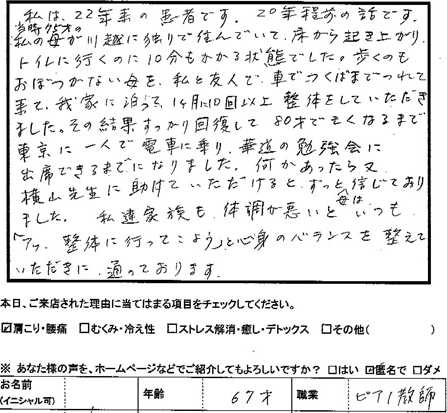 私は、22年来の患者です。20年程前の話です。
当時75才の
私の母が川越に独りで住んでいて、床から起き上がり、
トイレに行くのに10分もかかる状態でした。歩くのも
おぼつかない母を、私と友人で、車でつくばまでつれて
来て、我家に泊って、1ヶ月に10回以上 整体をしていただき
ました。その結果すっかり回復して 80才で亡くなるまで
東京に一人で電車に乗り、華道の勉強会に
出席できるまでになりました。何かあったら又
横山先生に助けていただけると、ずっと母は信じており
ました。 私達家族も、体調が悪いと いつも
「アッ、整体に行ってこよう」と心身のバランスを整えて
いただきに、通っております。
本日、ご来店された理由に当てはまる項目をチェックしてください。
☑肩こり・腰痛 □むくみ・冷え性 □ストレス解消・癒し・デトックス □その他( )
※ あなた様の声を、ホームページなどでご紹介してもよろしいですか？ □はい ☑匿名で □ダメ
お名前 年齢 67才 職業 ピアノ教師
(イニシャル可)